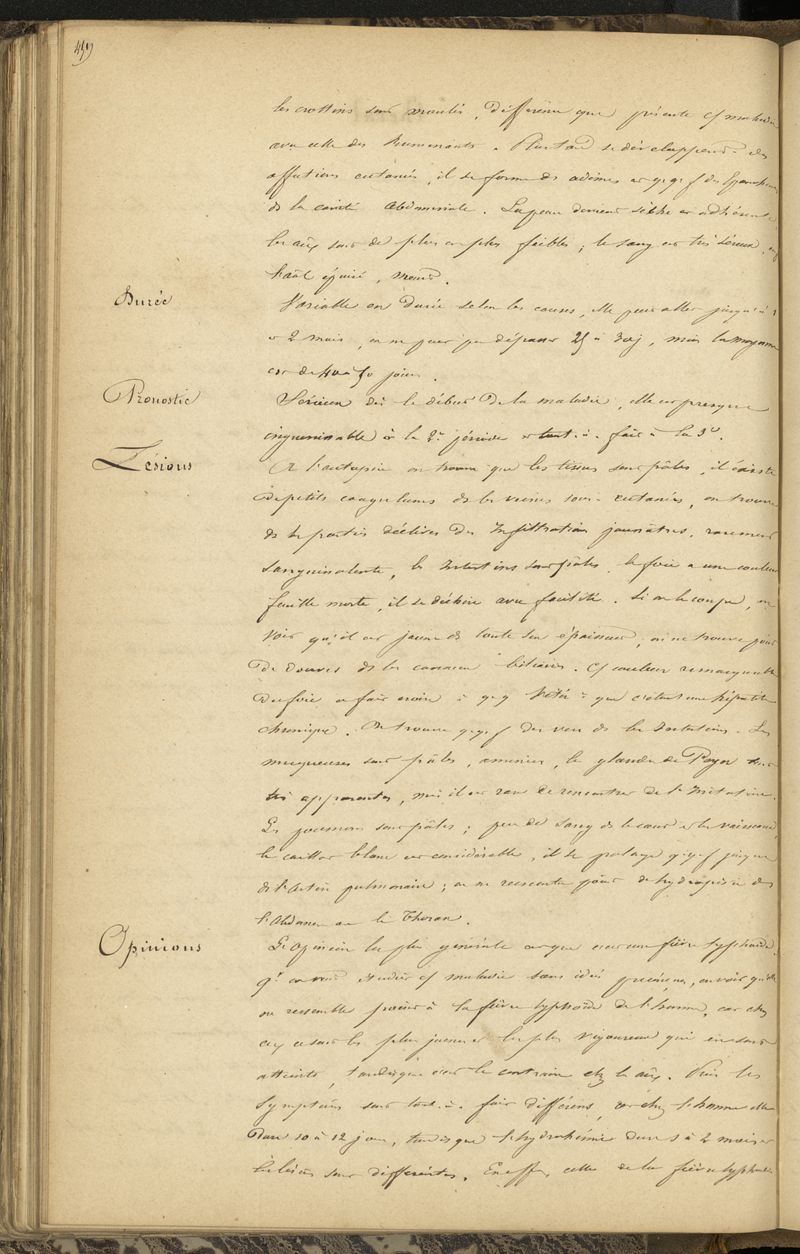 les crottins sont moulés, différence que présente cette maladie
avec celle des Ruminants. Plus tard se développent des
affections cutanées, il se forme des œdèmes et qqf des épanchements
ds la cavité abdominale. La peau devient sèche et adhérente
les aux sont de plus en plus faibles ; le sang est très séreux, enfin
l'aal épuisé, meurt.
Durée
Variable en durée selon les causes, elle peut aller jusqu'à 1
et 2 mois, on ne peut pas dépasser 25 à 30 j, mais la moyenne
est de 40 à 50 jours.
Pronostic
Sérieux dès le début de la maladie, elle est presque
inguérissable à la 2e période et tout-à-fait à la 3e.
Lésions
A l'autopsie on trouve que les tissus sont pâles, il existe
de petits coagulums ds les veines sous-cutanées, on trouve
ds les parties déclives des Infiltrations jaunâtres, rarement
sanguinolente, les Intestins sont pâles, le foie a une couleur
feuille morte, il se déchire avec facilité. Si on le coupe, on
voit qu'il est jaune ds toute son épaisseur, on ne trouve point
de douves ds les canaux biliaires. Cette couleur remarquable
du foie a fait croire à qq Vétér. que c'était une hépatite
chronique. On trouve qqf des vers ds les Intestins. Les
muqueuses sont pâles, amincies, les glandes de Peyer sont
très apparentes, mais il est rare de rencontrer de l'Irritation.
Les poumons sont pâles ; peu de sang ds le cœur et les vaisseaux,
le caillot blanc est considérable, il se prolonge qqf jusque
ds l'artère pulmonaire ; on ne rencontre point de hydropisie ds
l'Abdomen ou le Thorax.
Opinions
L'Opinion la plus générale est que c'est une fièvre typhoïde,
qd on veut étudier cette maladie sans idées préconçues, on voit qu'elle
ne ressemble point à la fièvre typhoïde de l'homme, car chez
eux ce sont les plus jeunes et les plus vigoureux qui en sont
atteints, tandis que c'est le contraire chez les aux. Puis les
symptômes sont tout-à-fait différents, car chez l'homme elle
dure 10 à 12 jours, tandis que l'hydrohémie dure 1 à 2 mois et
les lésions sont différentes. En effet, celles de la fièvre typhoïde